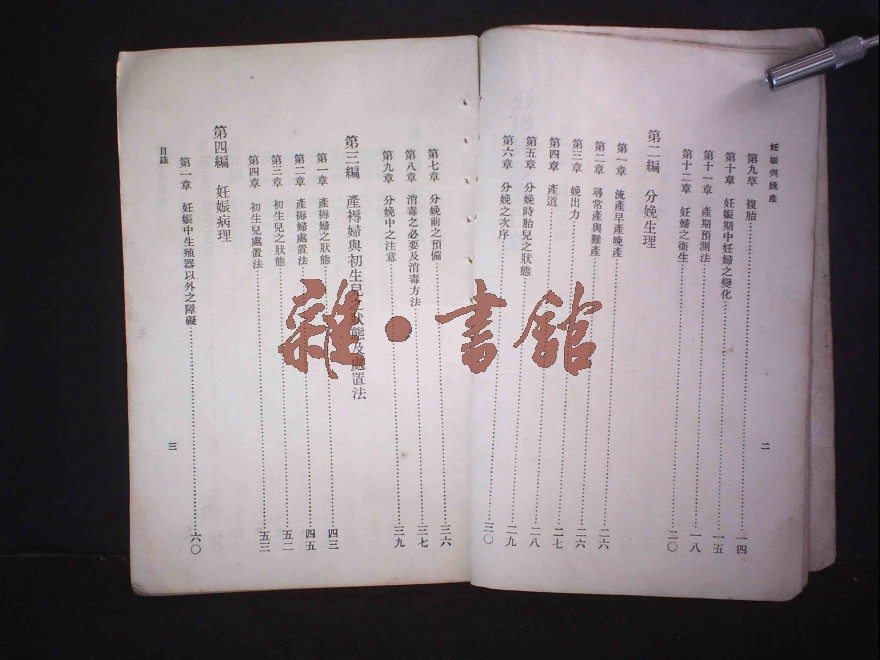 妊娠與娩產
第九章 複胎 一四
第十章 妊娠期中妊婦之變化 一五
第十一章 產期預測法 一八
第十二章 妊婦之衛生 二〇
第二編 分娩生理
第一章 流產早產晚產 二六
第二章 尋常產與難產 二六
第三章 娩出力 二六
第四章 產道 二七
第五章 分娩時胎兒之狀態 二八
第六章 分娩之次序 二九
三〇
二
第七章 分娩前之預備 三六
第八章 消毒之必要及消毒方法 三七
第九章 分娩中之注意 三九
第三編 產褥婦與初生兒之狀態及處置法
第一章 產褥婦之狀態 四三
第二章 產褥婦處置法 四五
第三章 初生兒之狀態 五二
第四章 初生兒處置法 五三
第四編 妊娠病理
第一章 妊娠中生殖器以外之障礙 六〇
目錄
三
雜·書館